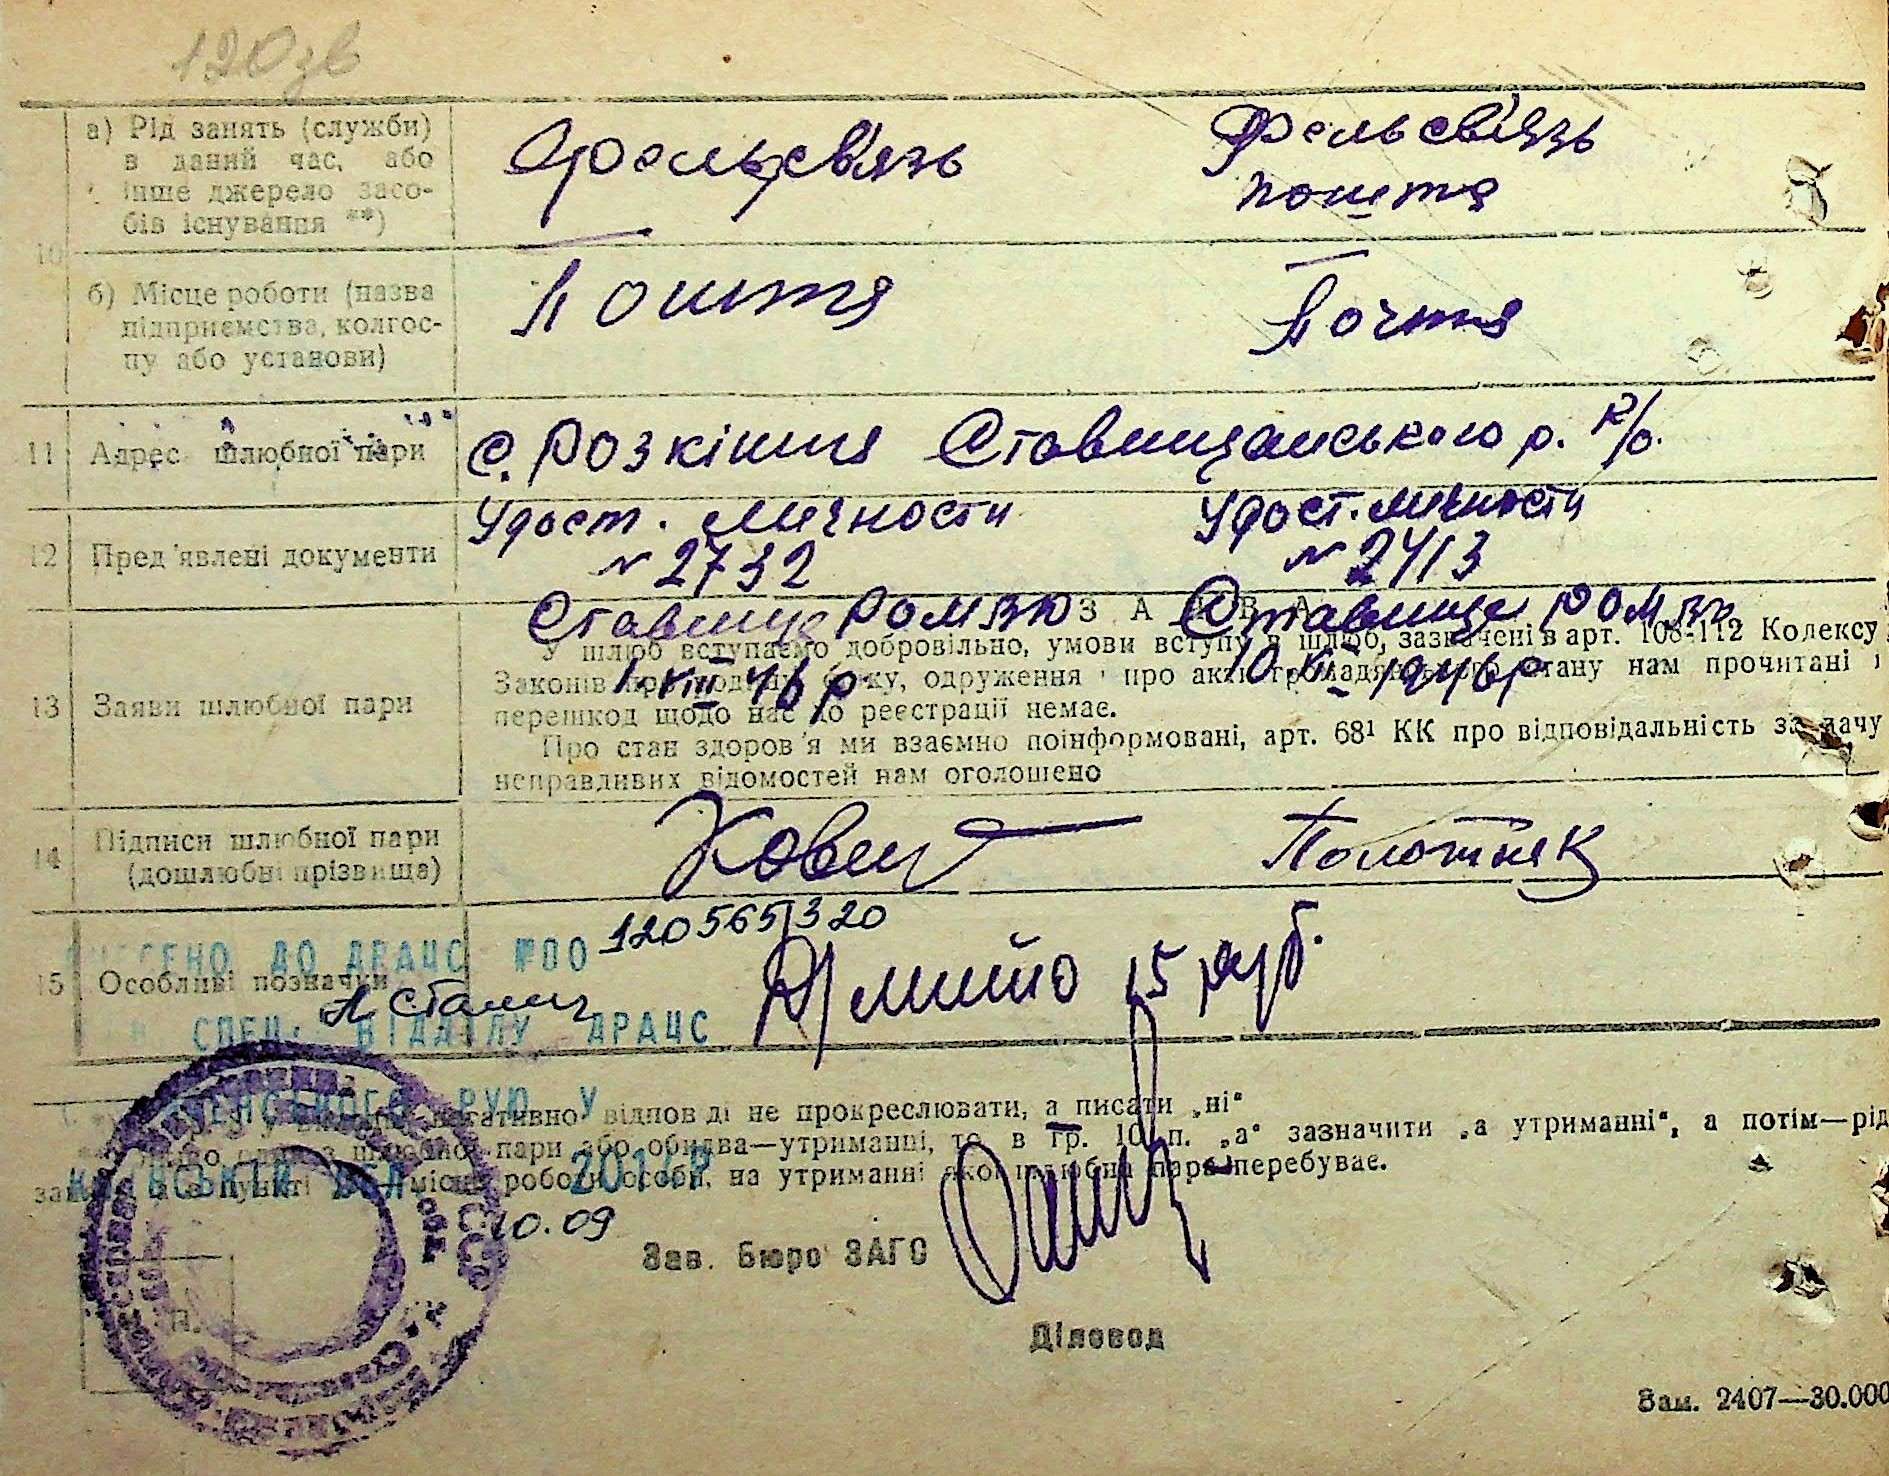 120 зв
а) Рід занять (служби) в даний час, або інше джерело засобів існування **)
Фельдсв'язь
Фельсвіязь пошта
10
б) Місце роботи (назва підприємства, колгоспу або установи)
Пошта
Почта
11 Адрес шлюбної пари
с. Розкішня Ставищанського р. К/о.
12 Пред'явлені документи
Удост. личности
№ 2732
Удост. личности
№ 2413
Ставище
Ставище
1 VIII 46 р
13 Заяви шлюбної пари
ЗАЯВА
У шлюб вступаємо добровільно, умови вступу в шлюб, зазначені в арт. 108-112 Колексу
Законів про одруження про акти громадянського стану нам прочитані і
перешкод щодо нас до реєстрації немає.
Про стан здоров'я ми взаємно поінформовані, арт. 68¹ КК про відповідальність за дачу
неправдивих відомостей нам оголошено
14 Підписи шлюбної пари (дошлюбні прізвища)
Полотняк
ВНЕСЕНО ДО ДРАЦС №00 120565320
15 Особливі позначки
15 руб.
СПЕЦ. ВІДДІЛУ ДРАЦС
РУЮ У
негативно відповіді не прокреслювати, а писати „ні"
пари або обидва—утриманці, то в гр. 10 п. „а" зазначити „а утриманні", а потім—рід
місце роботи особи, на утриманні якої шлюбна пара перебуває.
10.09
Зав. Бюро ЗАГС
Діловод
Зам. 2407—30.000